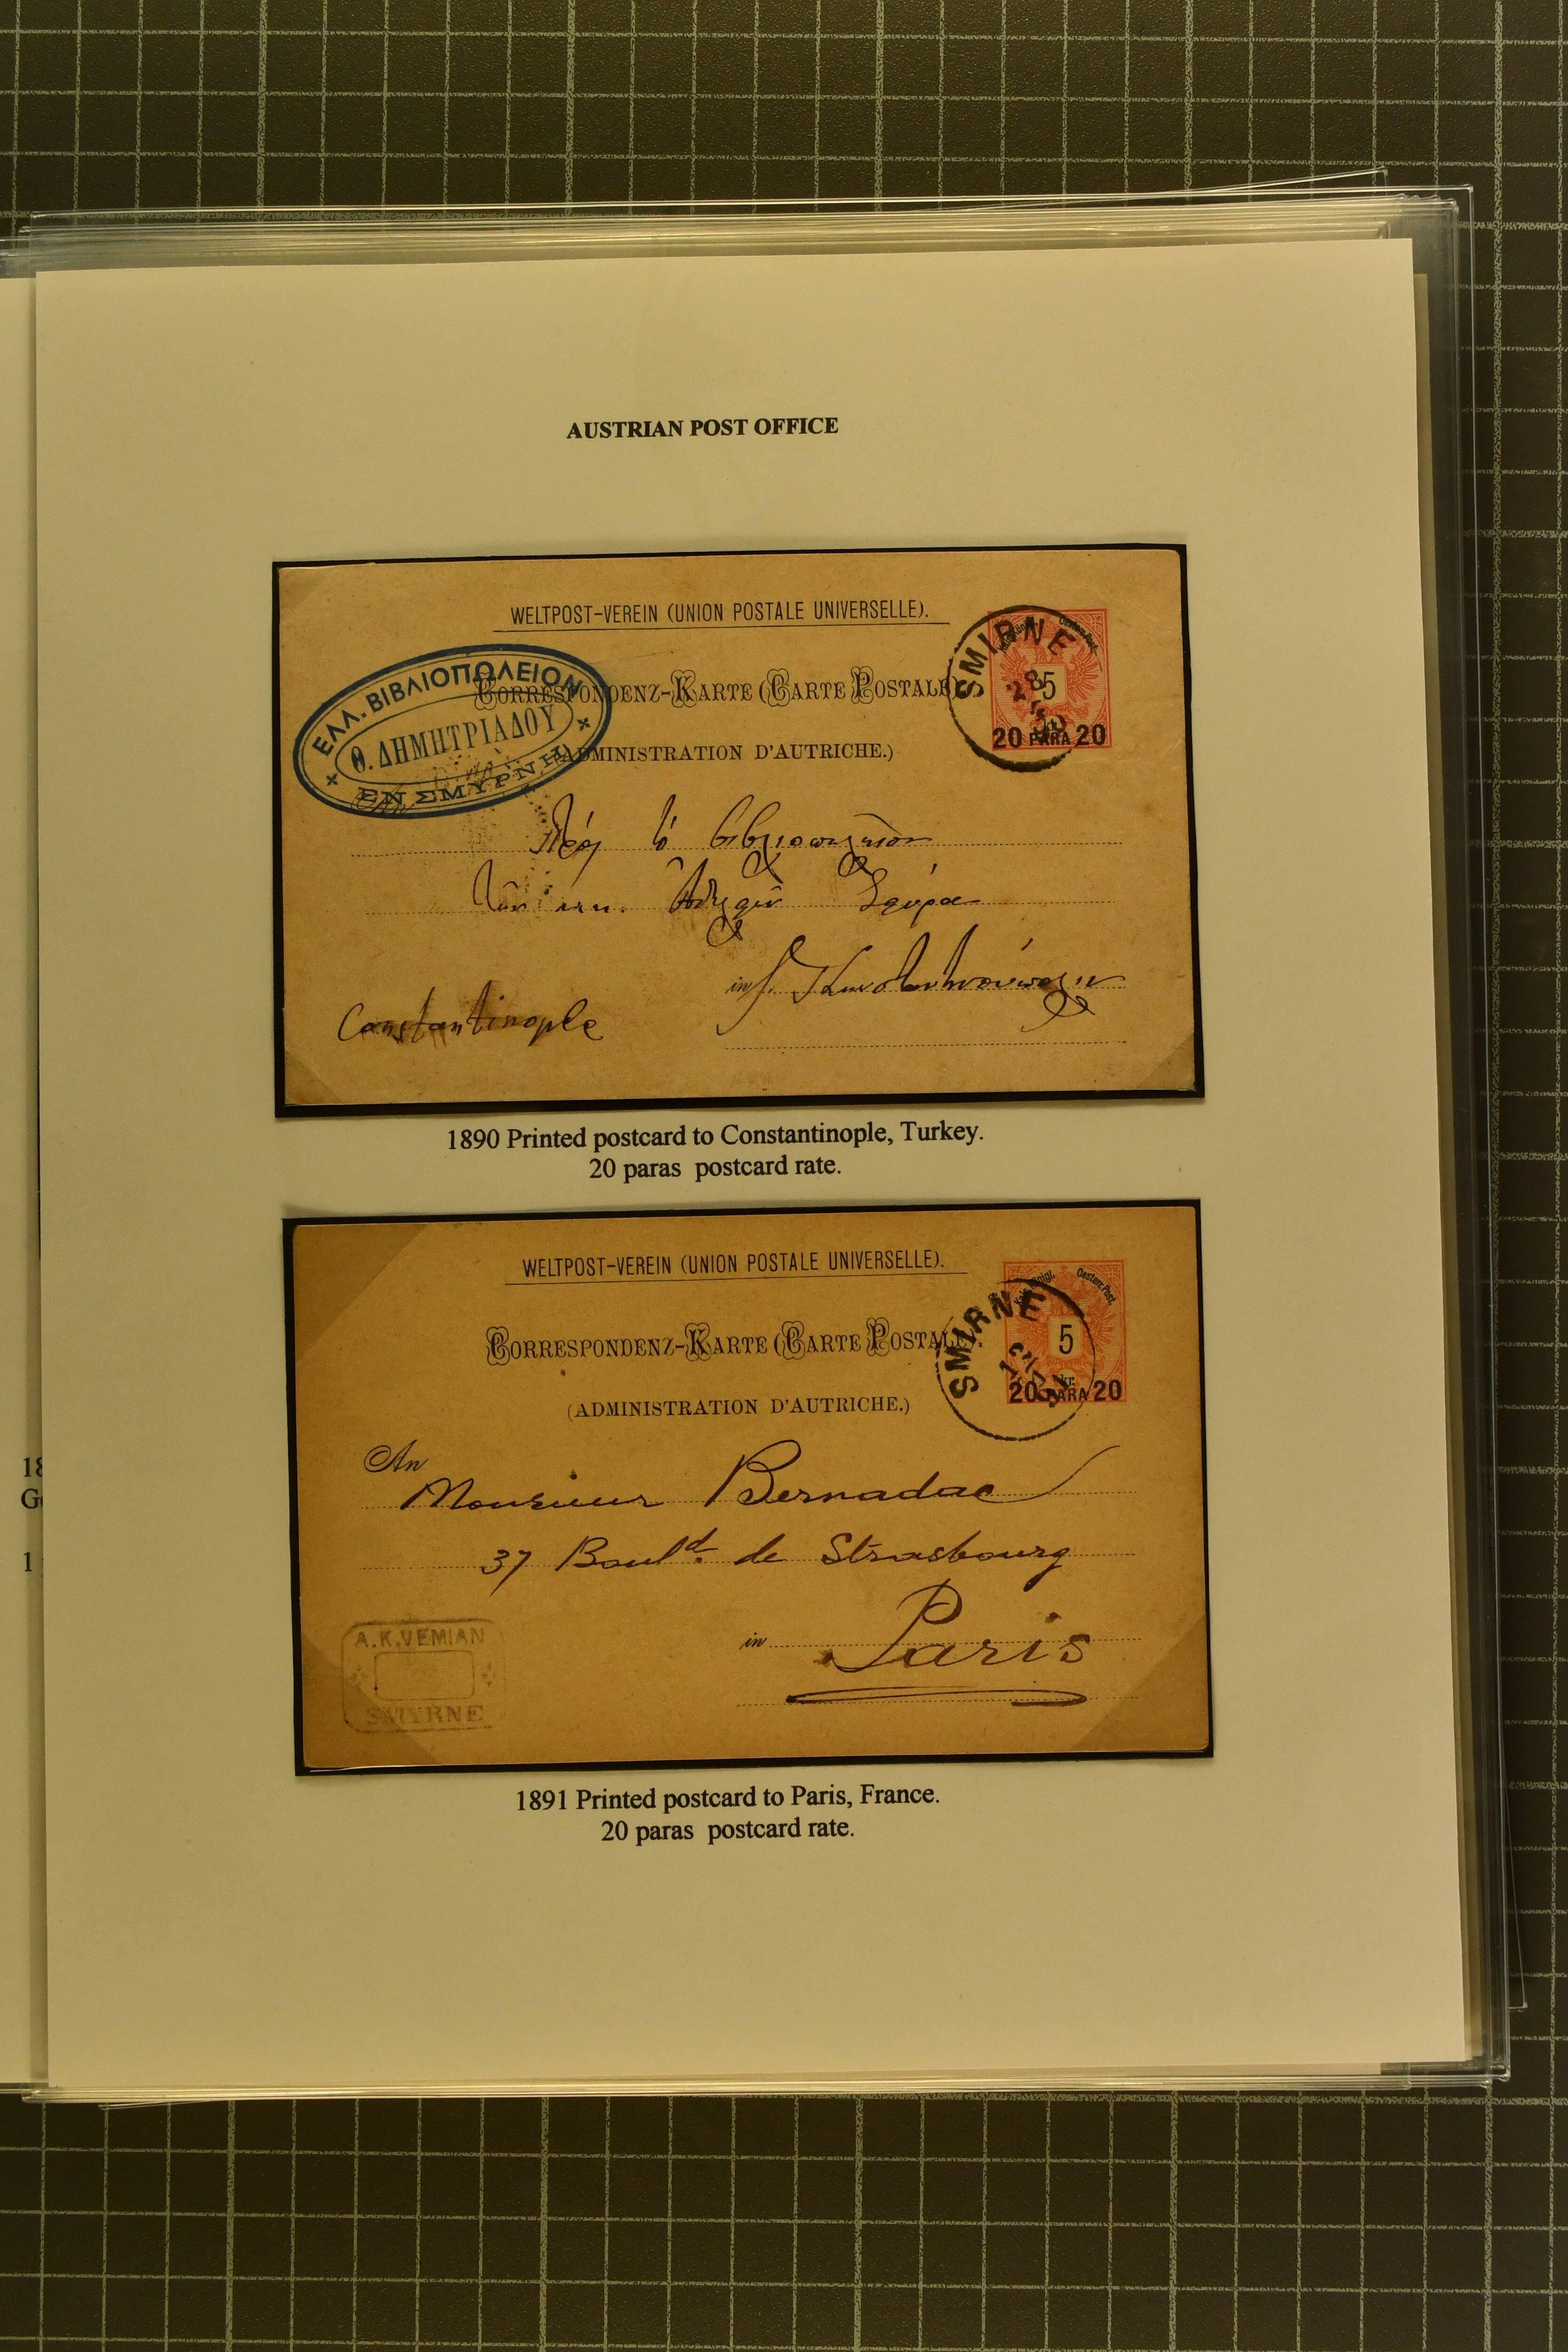 AUSTRIAN POST OFFICE
WELTPOST-VEREIN (UNION POSTALE UNIVERSELLE).
CORRESPONDENZ-KARTE (CARTE POSTALE)
(ADMINISTRATION D'AUTRICHE.)
ΕΛΛ. ΒΙΒΛΙΟΠΩΛΕΙΟΝ
Θ. ΔΗΜΗΤΡΙΑΔΟΥ
ΕΝ ΣΜΥΡΝΗ
SMIRNE
28
5
20 PARA 20
An
Πρός τό βιβλιοπωλεῖον
Τῶν κκ. Ἀδελφῶν
in Κωνσταντινούπολιν
Constantinople
1890 Printed postcard to Constantinople, Turkey.
20 paras postcard rate.
WELTPOST-VEREIN (UNION POSTALE UNIVERSELLE).
CORRESPONDENZ-KARTE (CARTE POSTALE).
(ADMINISTRATION D'AUTRICHE.)
SMIRNE
Kais. Königl. Oesterr. Post.
5
kr.
20 PARA 20
An
Monsieur Bernadac
37 Boul.d de Strasbourg
in Paris
A. K. VEMIAN
SMYRNE
1891 Printed postcard to Paris, France.
20 paras postcard rate.
18
1